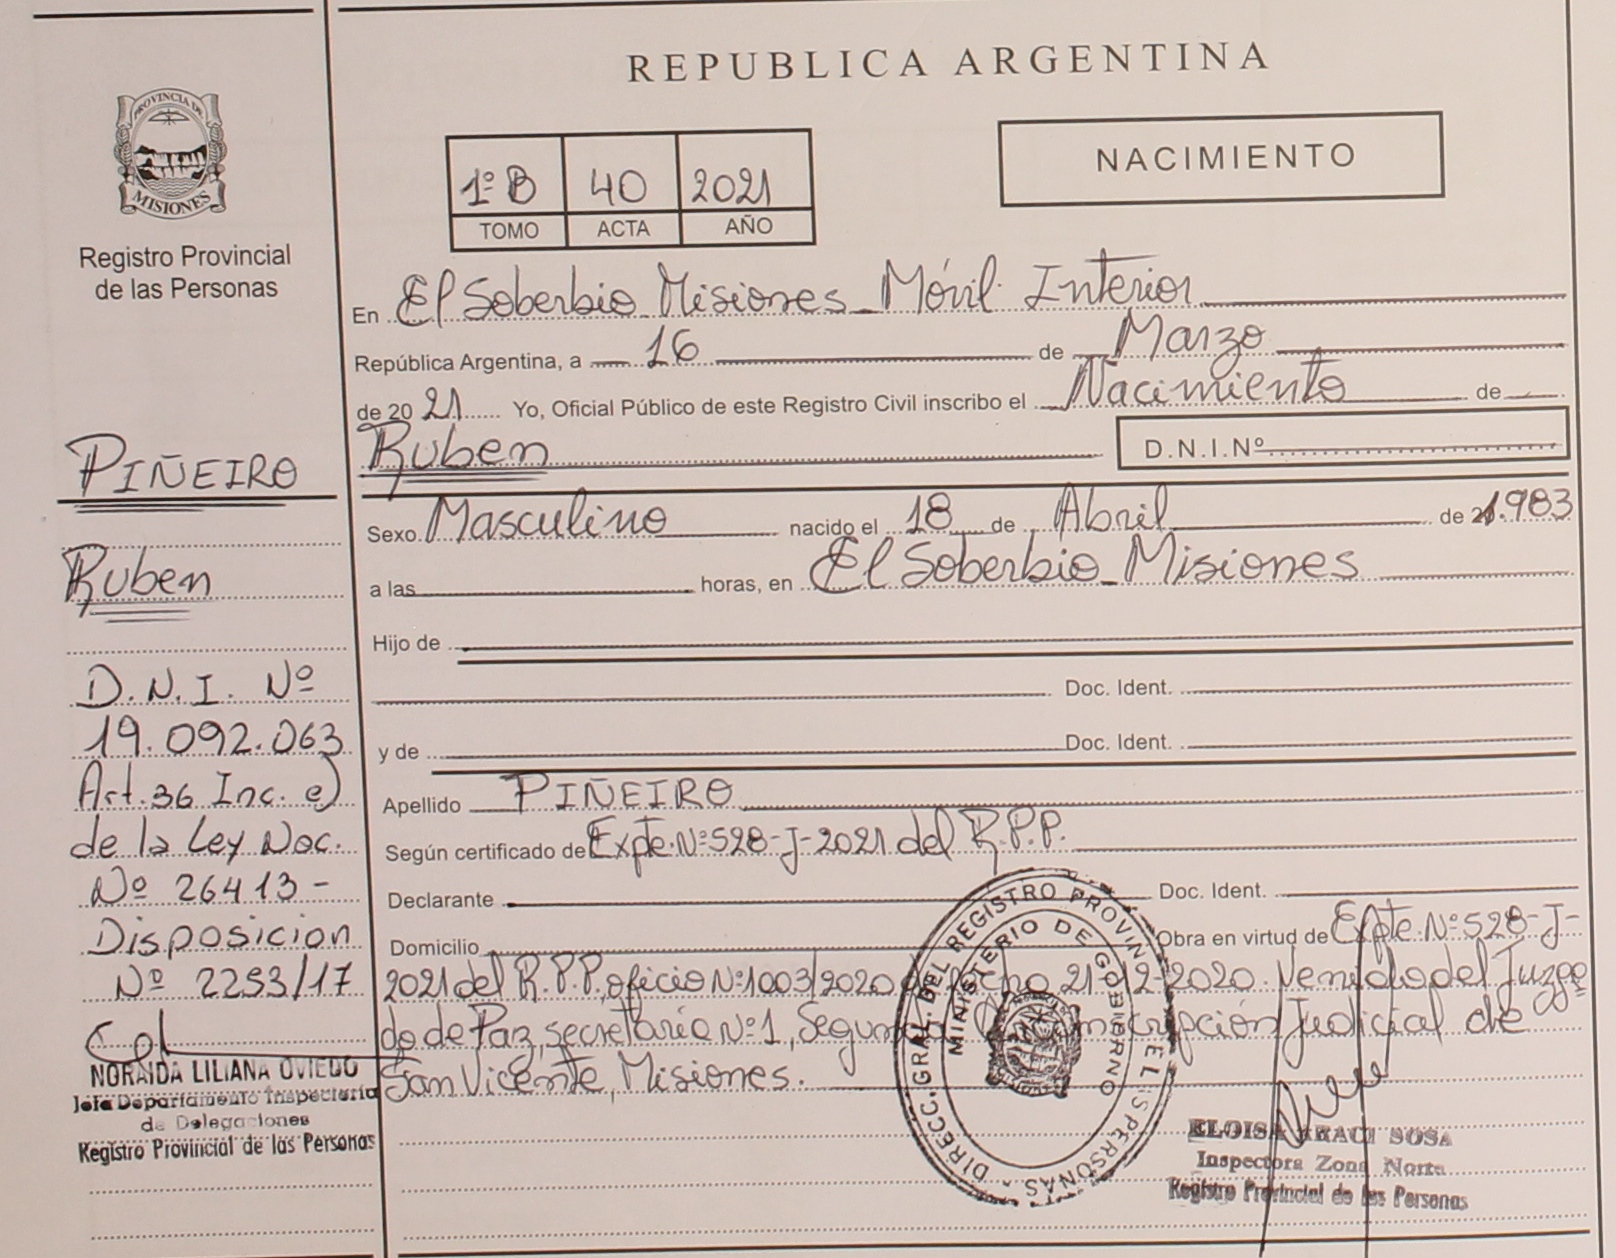 PROVINCIA DE
MISIONES
Registro Provincial
de las Personas
PIÑEIRO
Ruben
D.N.I. Nº
19.092.063
Art. 36 Inc. e)
de la Ley Nac.
Nº 26413-
Disposicion
Nº 2253/17
NORAIDA LILIANA OVIEDO
Jefa Departamento Inspectoria
de Delegaciones
Registro Provincial de las Personas
REPUBLICA ARGENTINA
1º B 40 2021
TOMO ACTA AÑO
NACIMIENTO
En El Soberbio Misiones Móvil Interior
República Argentina, a 16 de Marzo
de 2021 Yo, Oficial Público de este Registro Civil inscribo el Nacimiento de
Ruben D.N.I.Nº
Sexo Masculino nacido el 18 de Abril de 1.983
a las horas, en El Soberbio Misiones
Hijo de
Doc. Ident.
y de Doc. Ident.
Apellido PIÑEIRO
Según certificado de Expte. Nº 528-J-2021 del R.P.P.
Declarante Doc. Ident.
Domicilio Obra en virtud de Expte. Nº 528-J-
2021 del R.P.P, oficio Nº 1003/2020 de fecha 21-12-2020. Venido del Juzga
do de Paz, secretaría Nº 1, Segunda Circunscripción Judicial de
San Vicente, Misiones.
DIRECC. GRAL. DEL REGISTRO PROVIN DE LAS PERSONAS
MINISTERIO DE GOBIERNO
ELOISA ARACI SOSA
Inspectora Zona Norte
Registro Provincial de las Personas